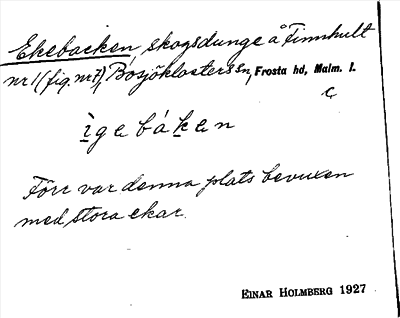 Ekebacken skogsdunge å Finnhult
nr 1 (fig. nr 7), Bosjöklosters sn, Frosta hd, Malm. l.
c
ìgebáken
Förr var denna plats bevuxen
med stora ekar.
EINAR HOLMBERG 1927